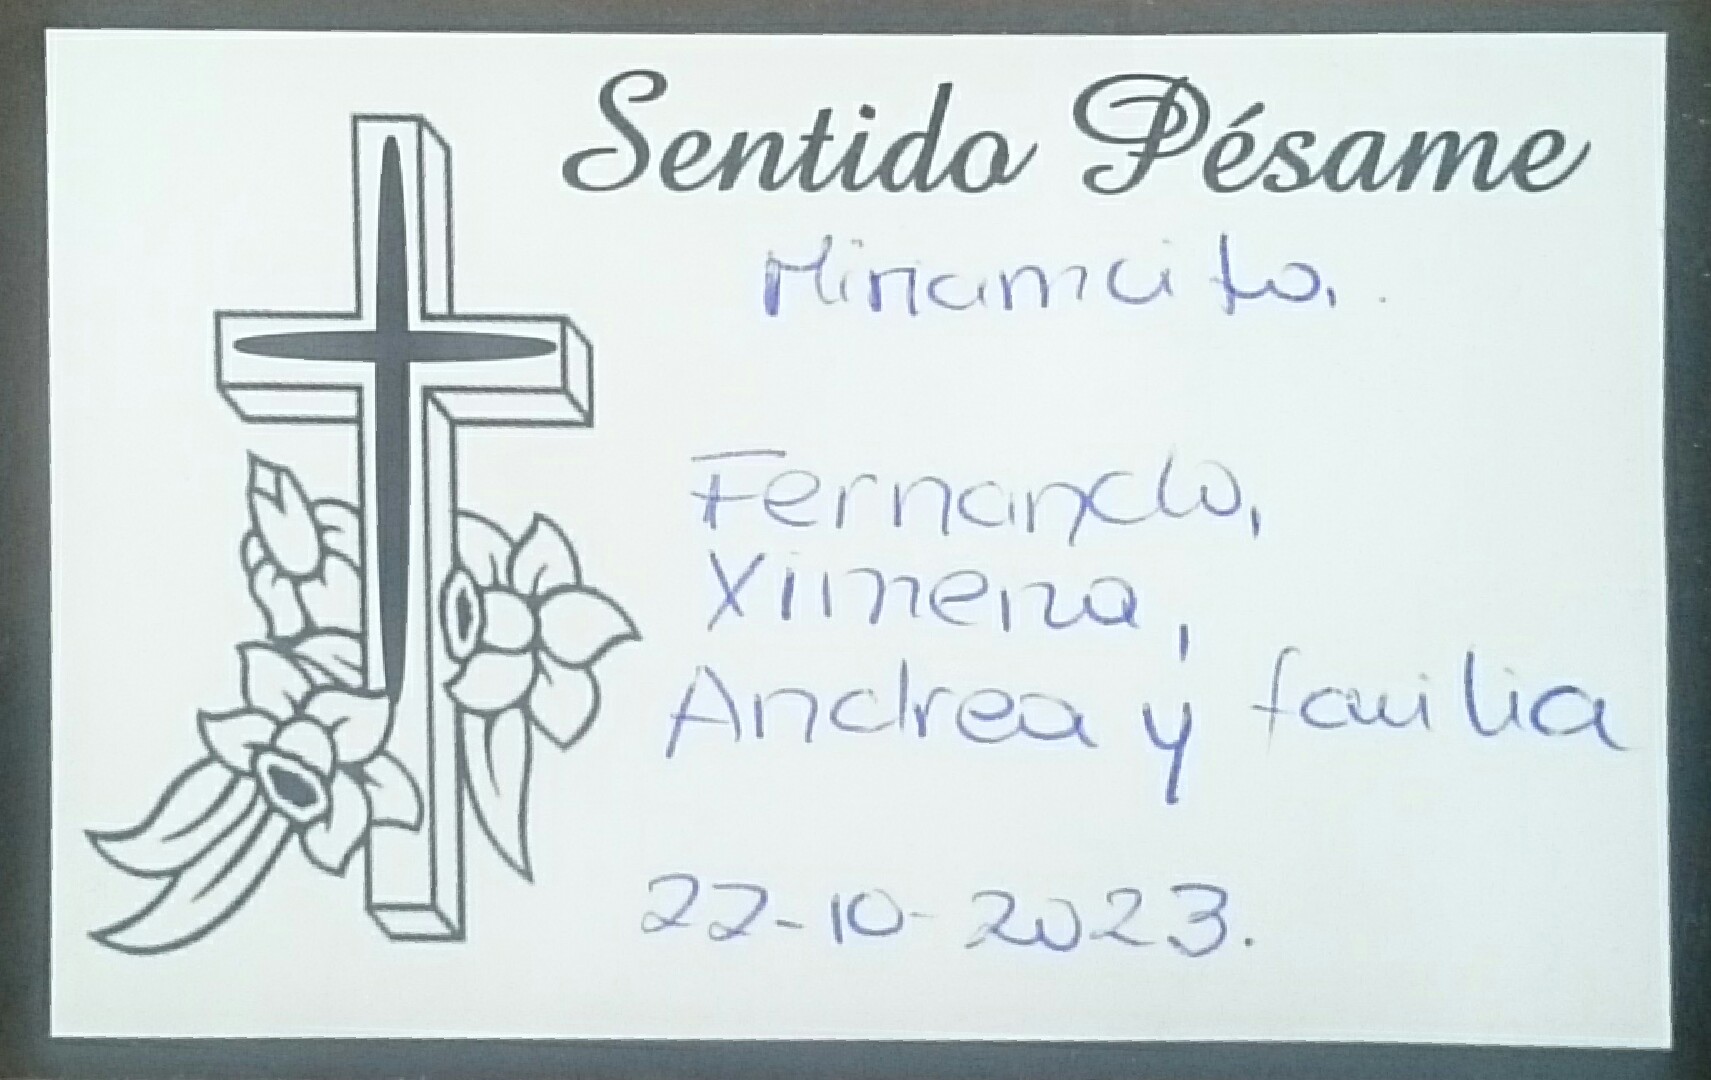 Sentido Pésame
Miriamcito.
Fernando,
Ximena,
Andrea y familia
22-10-2023.